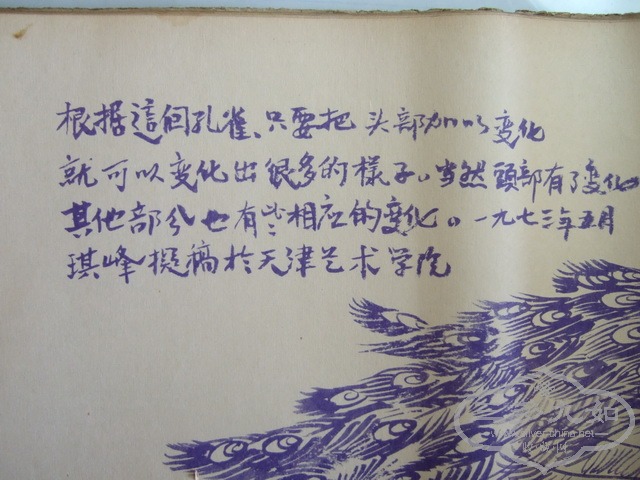 根据這個孔雀、只要把头部加以变化
就可以变化出很多的樣子。当然頭部有了变化
其他部分也有些相应的变化。一九七三年五月
琪峰擬稿於天津艺术学院